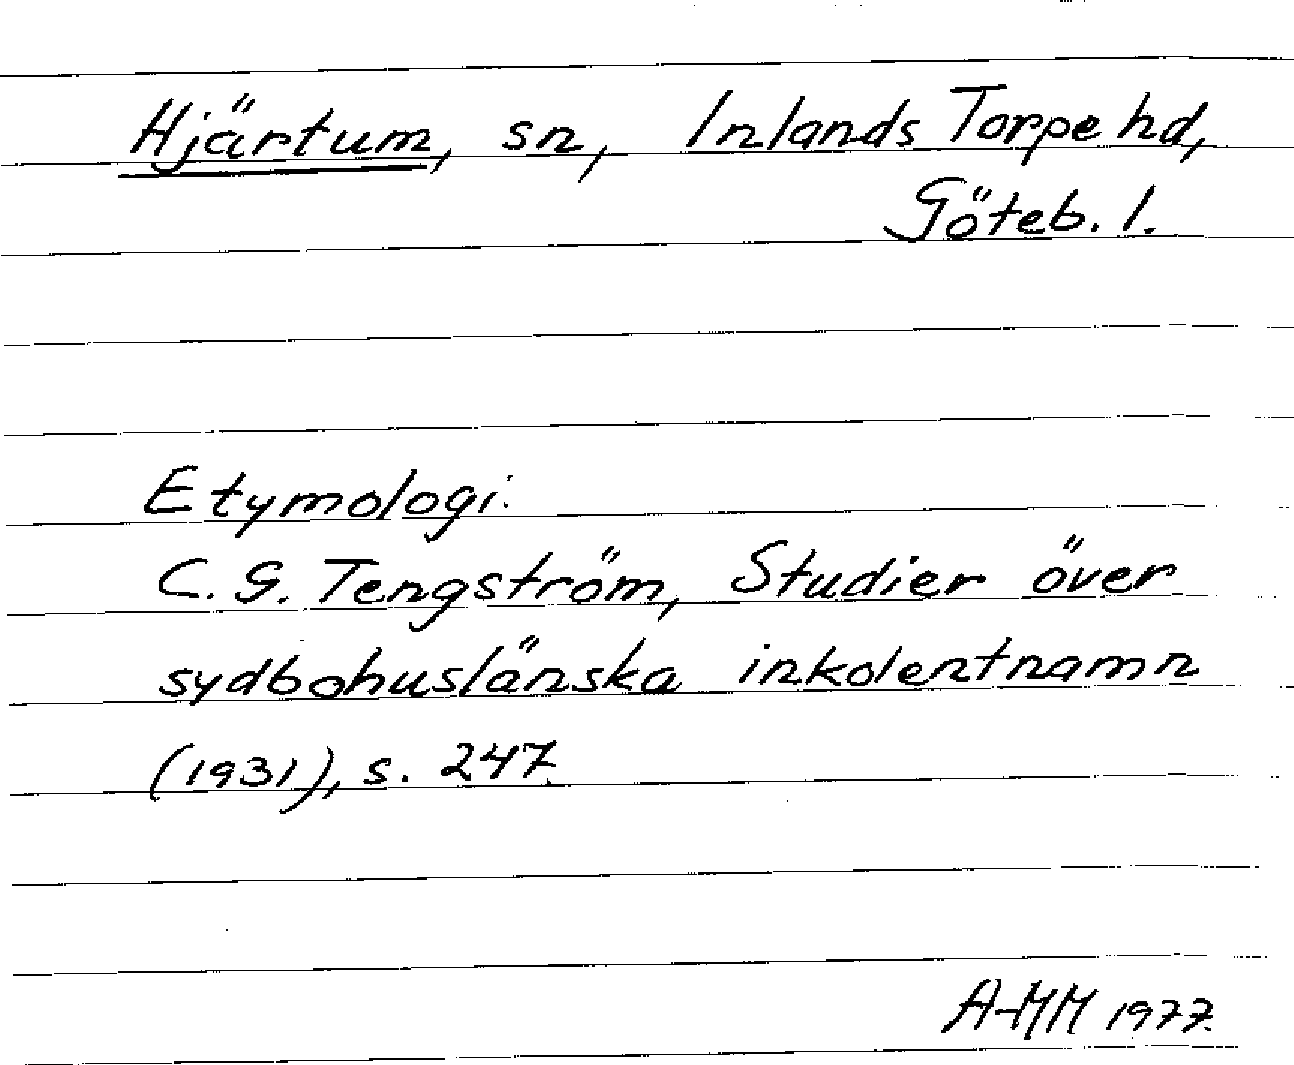 Hjärtum, sn, Inlands Torpe hd,
Göteb. l.
Etymologi:
C. G. Tengström, Studier över
sydbohuslänska inkolentnamn
(1931), s. 247.
A-MM 1977.